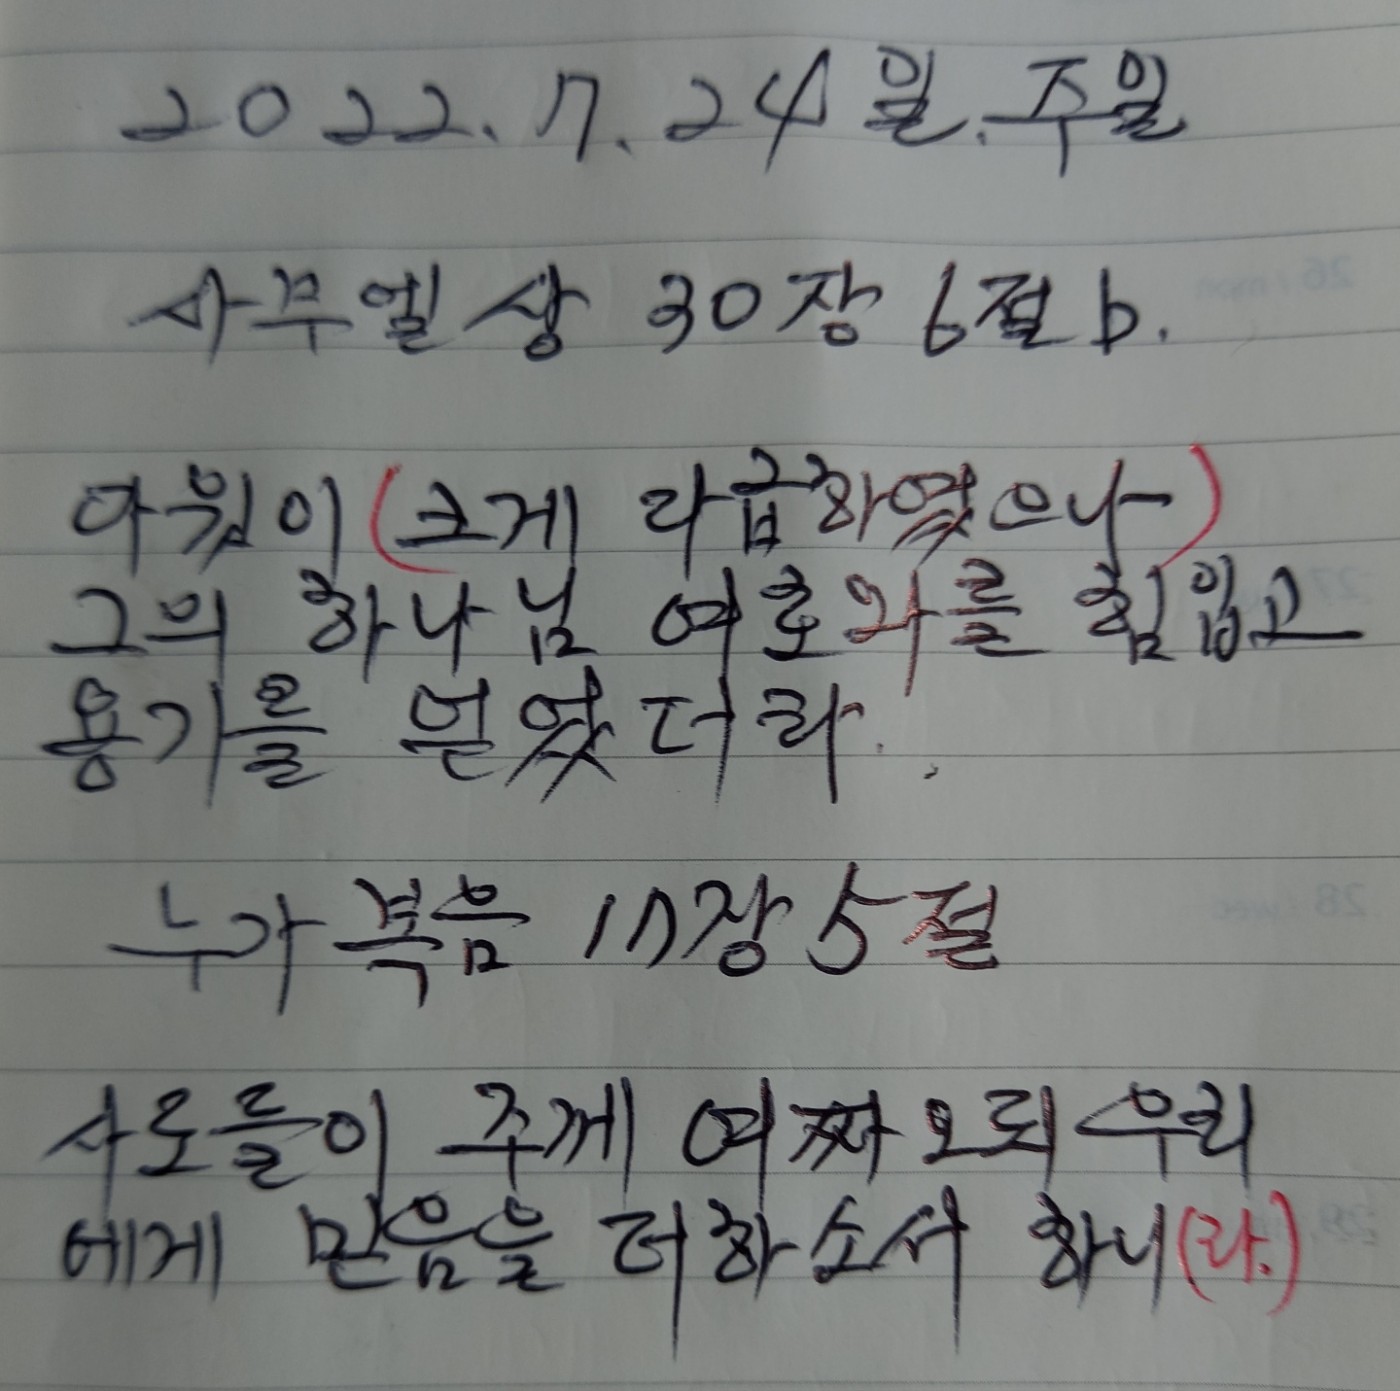 2022. 7. 24일. 주일
사무엘상 30장 6절 b.
다윗이 (크게 다급하였으나)
그의 하나님 여호와를 힘입고
용기를 얻었더라.
누가복음 17장 5절
사도들이 주께 여짜오되 우리
에게 믿음을 더하소서 하니(라.)